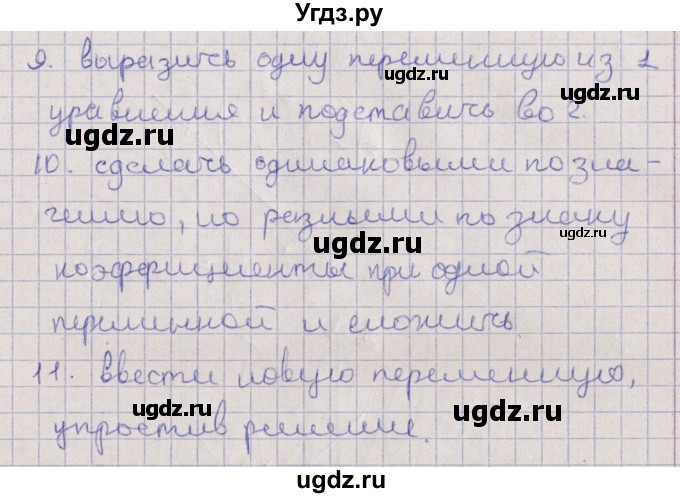 Угдз.ру
9. выразить одну переменную из 1
уравнения и подставить во 2.
10. сделать одинаковыми по зна-
чению, но разными по знаку
коэффициенты при одной
переменной и сложить
11. ввести новую переменную,
упростив решение.
ugdz.ru
ugdz.ru
ugdz.ru
ugdz.ru
ugdz.ru
ugdz.ru
ugdz.ru
ugdz.ru
ugdz.ru
ugdz.ru